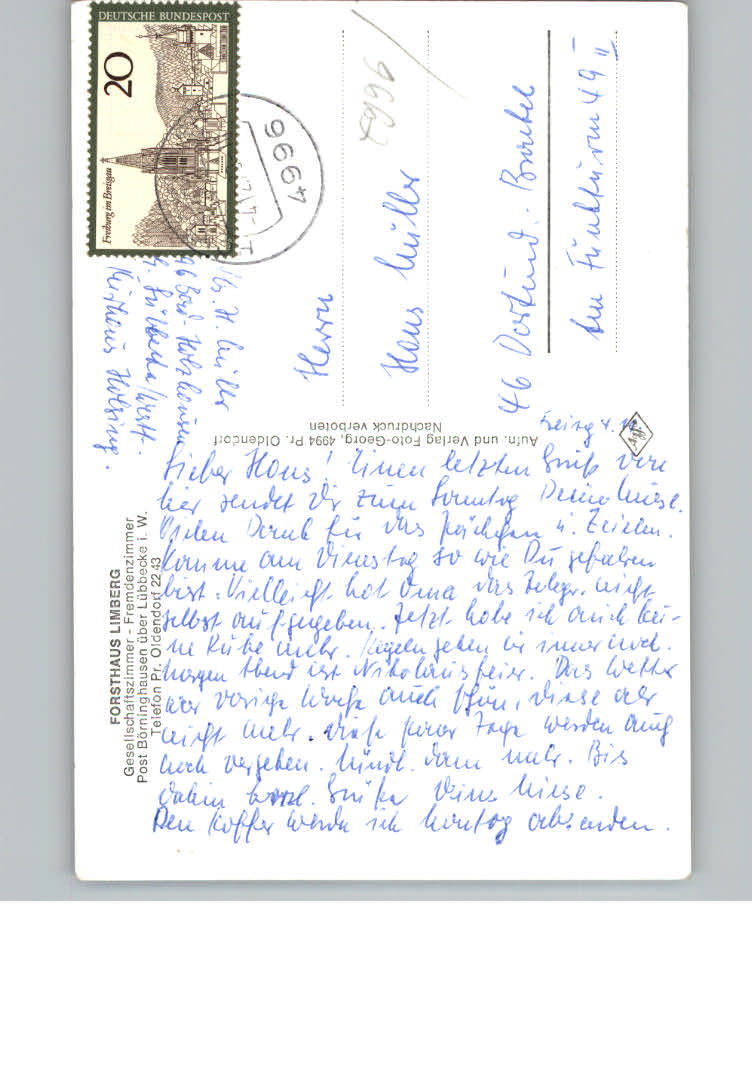 FORSTHAUS LIMBERG
Gesellschaftszimmer - Fremdenzimmer
Post Börninghausen über Lübbecke i. W.
Telefon Pr. Oldendorf 22 43
Freitag 4. 12
Lieber Hans! Einen letzten Gruß von
hier sendet Dir zum Sonntag Deine Miese.
Vielen Dank für das Päckchen u. Zeilen.
Komme am Dienstag so wie Du gefahren
bist. Vielleicht hat Oma das Telegr. nicht
selbst aufgegeben. Jetzt habe ich auch kei-
ne Ruhe mehr. Kegeln gehen wir immer noch.
Morgen Abend ist Nikolausfeier. Das Wetter
war vorige Woche auch schön, diese aber
nicht mehr. Diese paar Tage werden auch
noch vergehen. Mündl. dann mehr. Bis
dahin herzl. Grüße Deine Miese.
Den Koffer werde ich Montag absenden.
Aufn. und Verlag Foto-Georg, 4994 Pr. Oldendorf
Nachdruck verboten
DEUTSCHE BUNDESPOST
20
Freiburg im Breisgau
4996
4996
Abs. H. Müller
Bad Holzhausen
Lübbecke/Westf.
Kurhaus Holsing.
Herrn
Hans Müller
46 Dortmund-Brackel
Am Funkturm 49 II